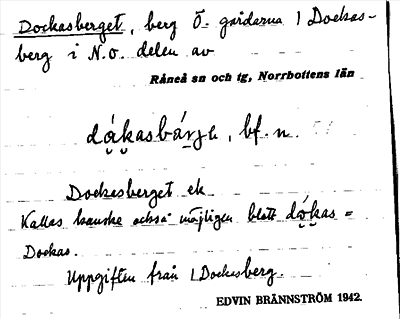 Dockasberget, berg Ö. gårdarna i Dockas-
berg i N.O. delen av
Råneå sn och tg, Norrbottens län
dåkasbárje, bf. n.
Dockesberget ek
Kallas kanske också möjligen blott dåkas =
Dockas.
Uppgiften från i Dockesberg.
EDVIN BRÄNNSTRÖM 1942.